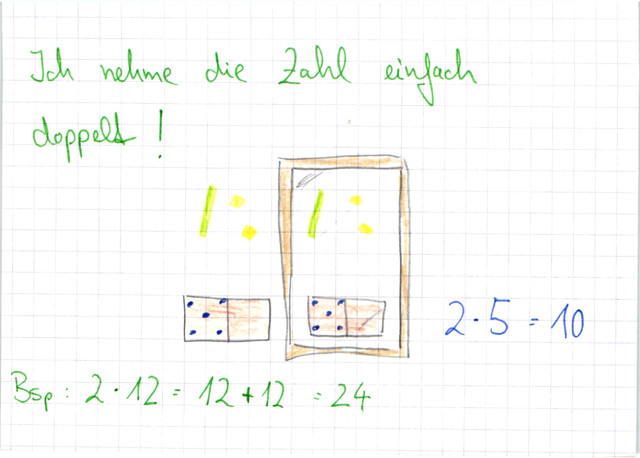 Ich nehme die Zahl einfach
doppelt!
2·5 = 10
Bsp: 2·12 = 12+12 = 24